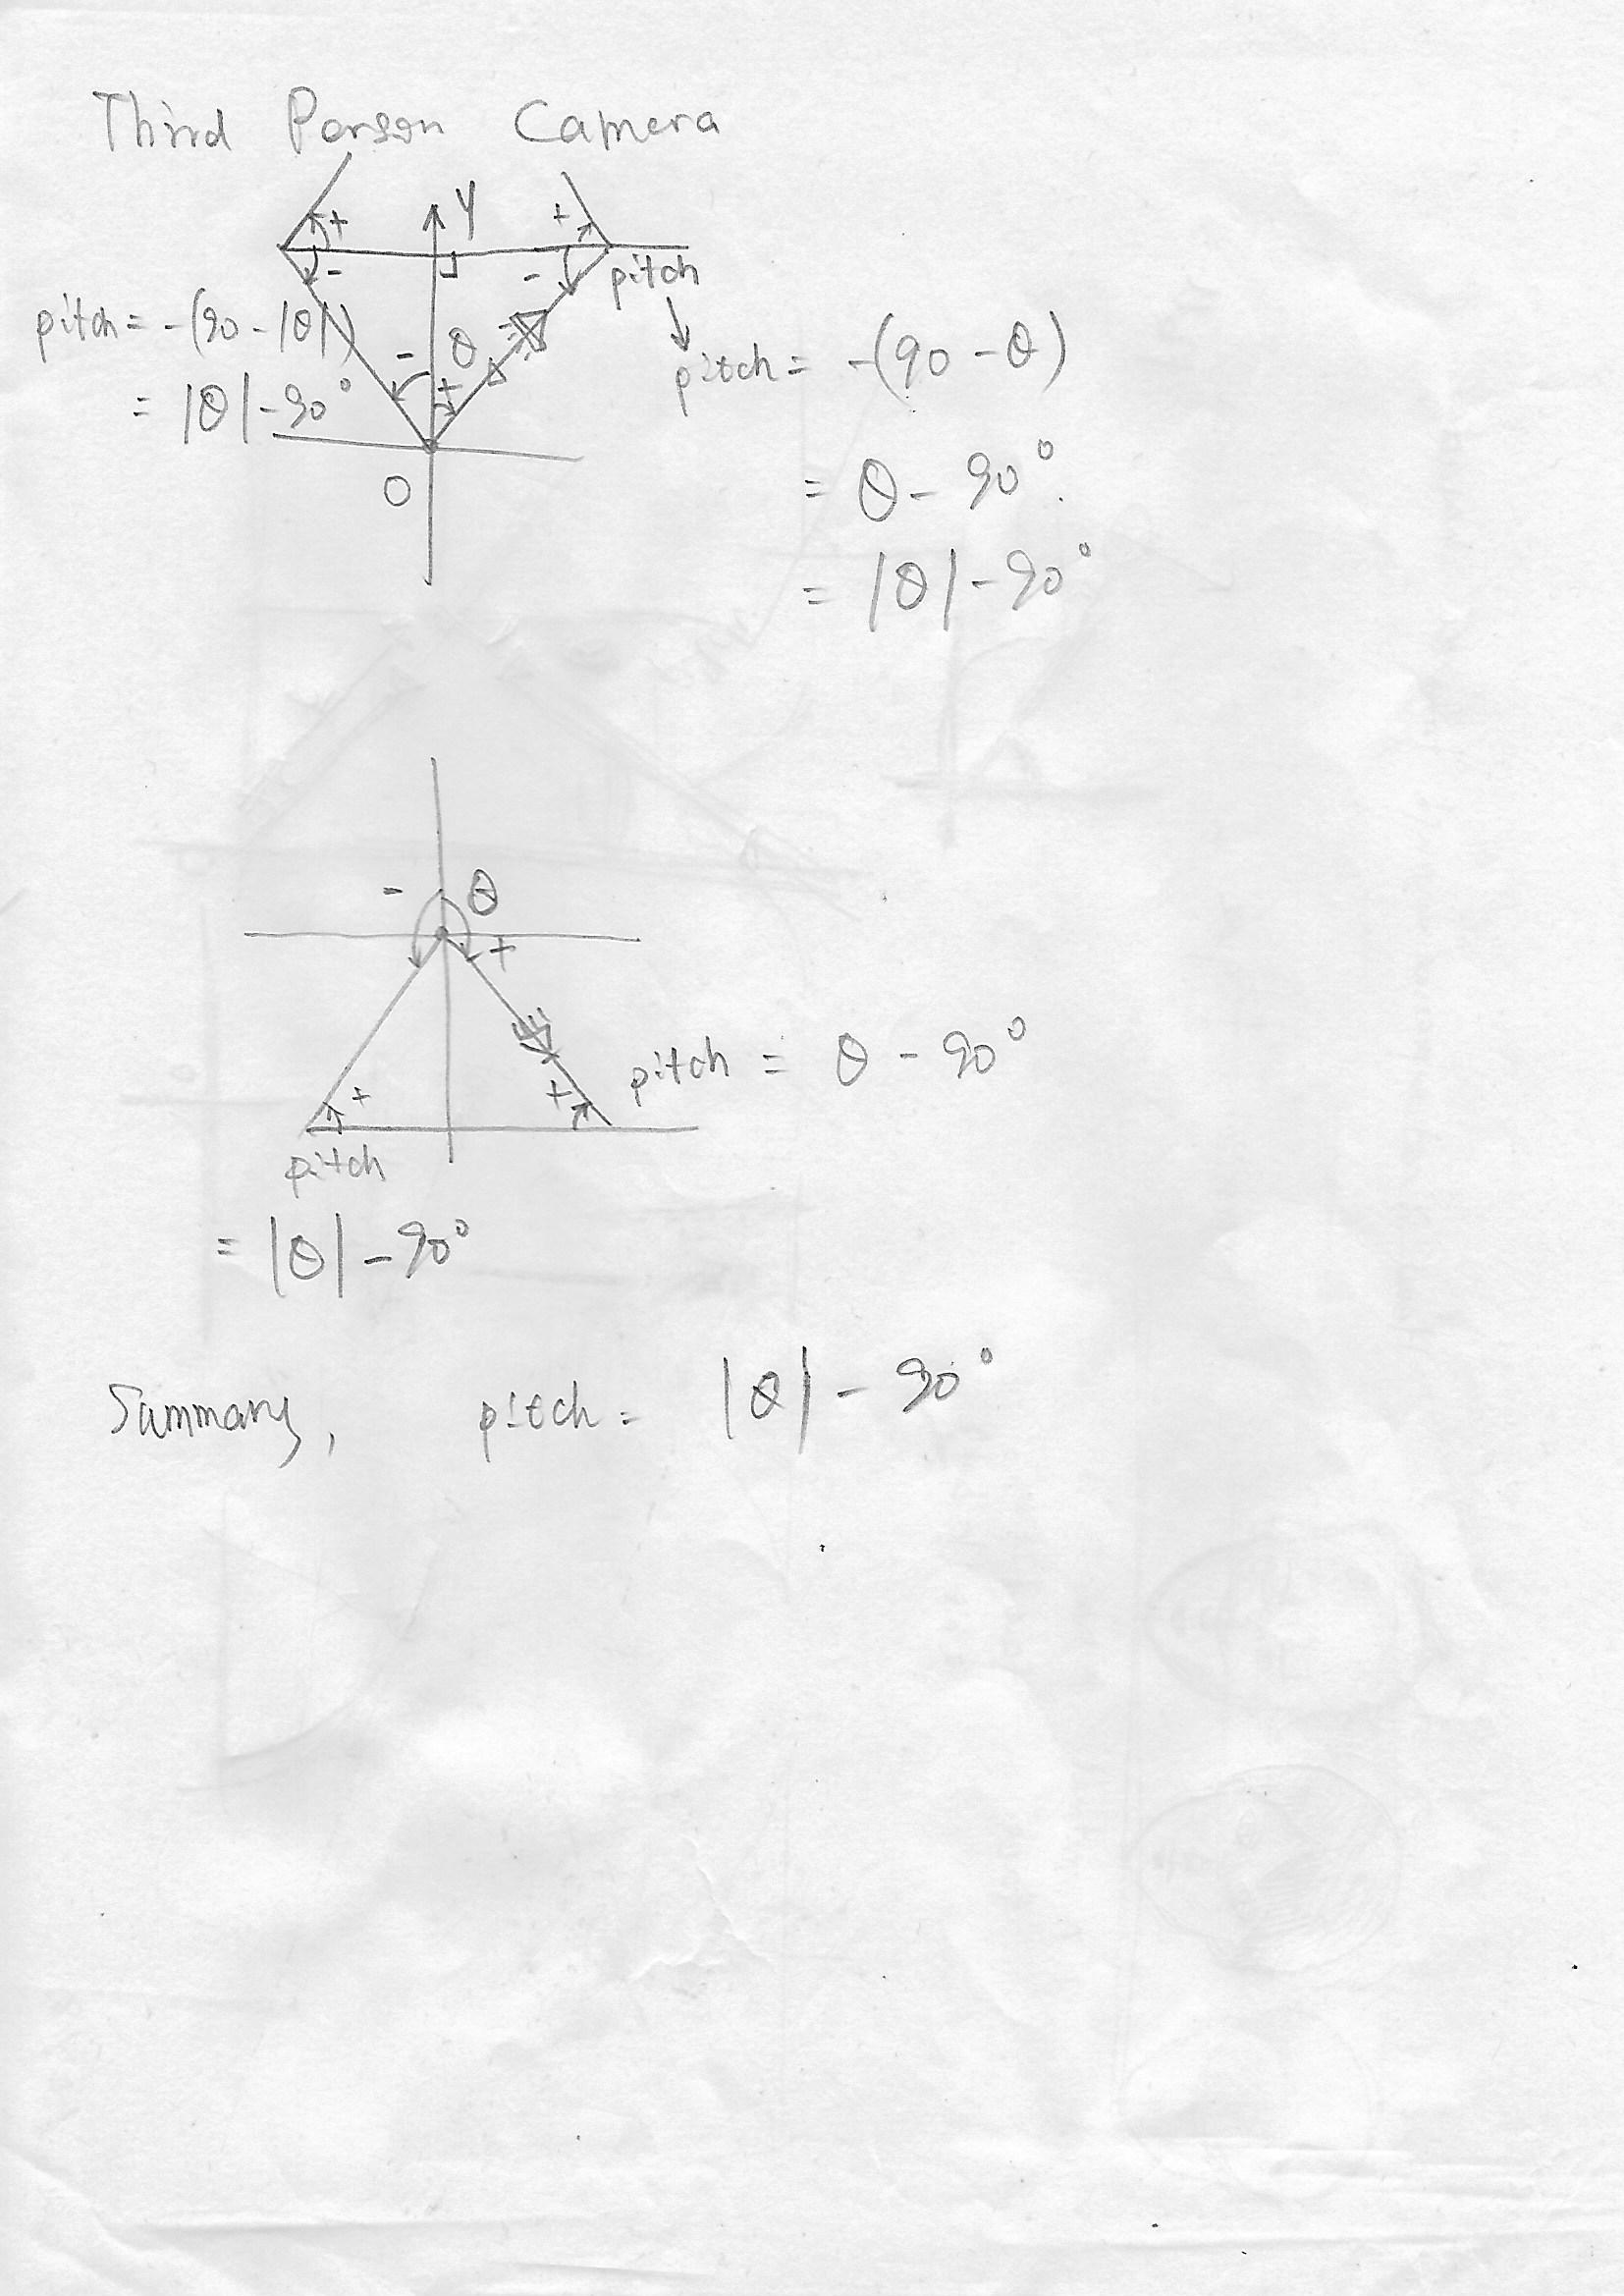 Third Person Camera
+ Y +
- - pitch
pitch = -(90 - |θ|)
- θ
pitch = -(90 - θ)
= |θ| - 90°
+
= θ - 90°
O
= |θ| - 90°
- θ
+
pitch = θ - 90°
+ +
pitch
= |θ| - 90°
Summary, pitch = |θ| - 90°